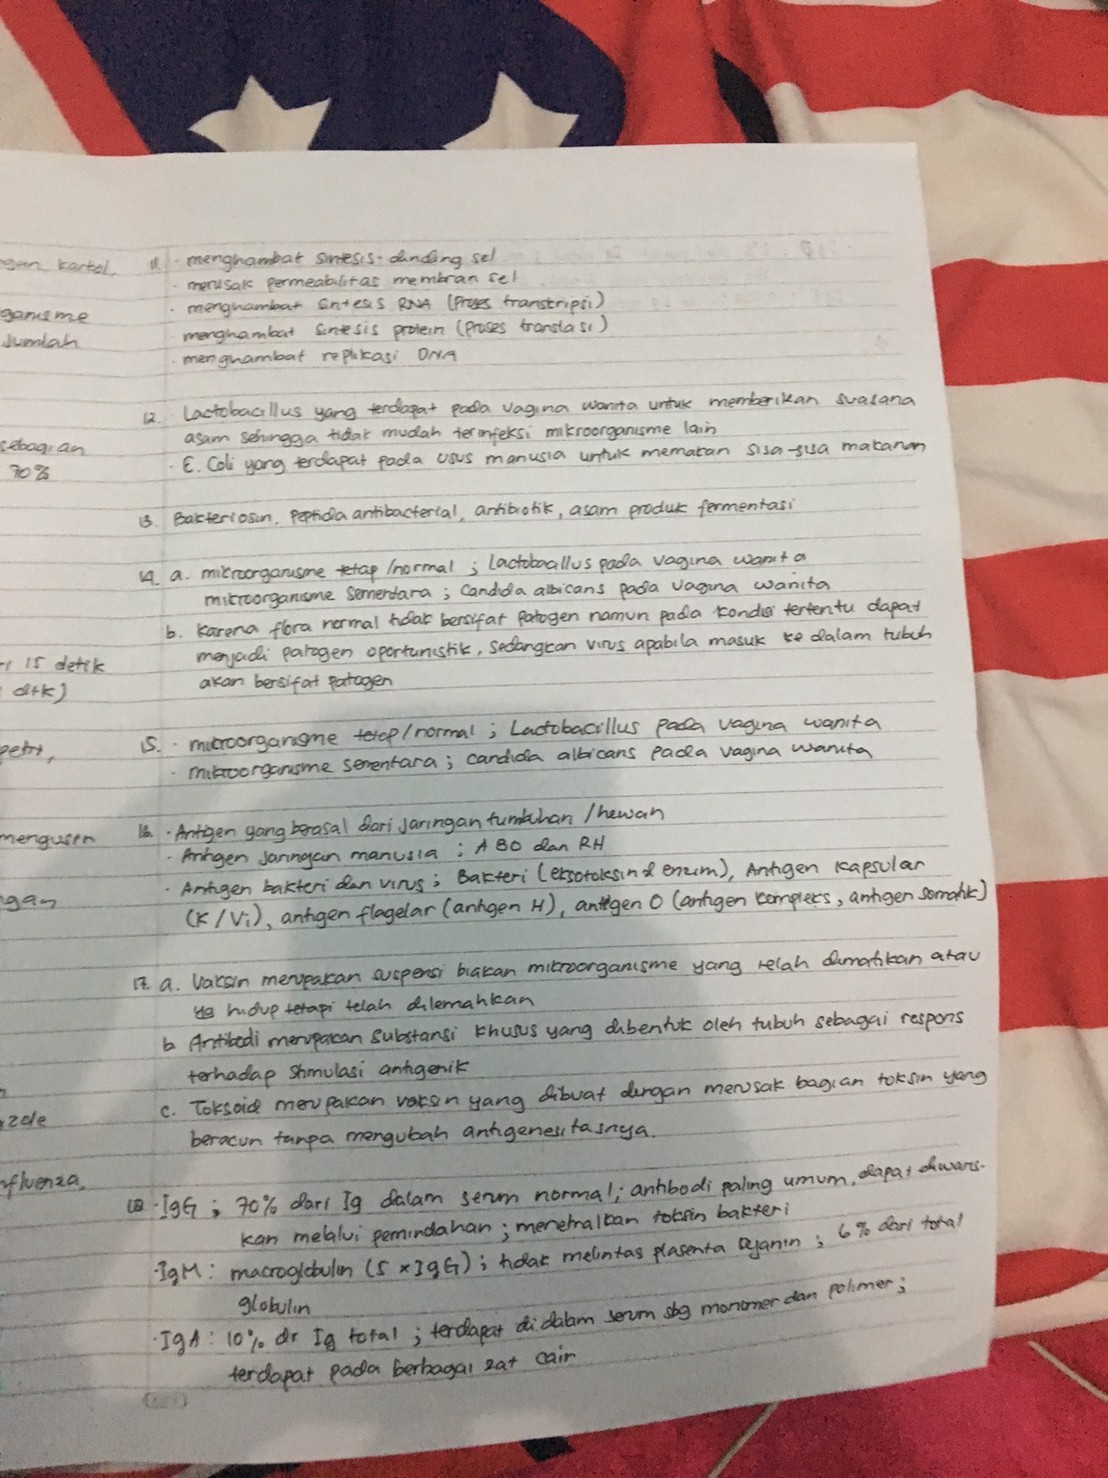 gan, karbol,
ganisme
Jumlah
sebagian
70%
15 detik
dtk)
petri,
gan
zole
nfluenza,
11. · menghambat sintesis dinding sel
· merusak permeabilitas membran sel
· menghambat sintesis RNA (proses transkripsi)
menghambat sintesis protein (proses translasi)
· menghambat replikasi DNA
12. Lactobacillus yang terdapat pada vagina wanita untuk memberikan suasana
asam sehingga tidak mudah terinfeksi mikroorganisme lain
· E. Coli yang terdapat pada usus manusia untuk memakan sisa-sisa makanan
13. Bakteriosin, peptida antibacterial, antibiotik, asam produk fermentasi
14. a. mikroorganisme tetap/normal ; Lactobacillus pada vagina wanita
mikroorganisme sementara ; Candida albicans pada vagina wanita
b. Karena flora normal tidak bersifat patogen namun pada kondisi tertentu dapat
menjadi patogen oportunistik, sedangkan virus apabila masuk ke dalam tubuh
akan bersifat patogen
15. · mikroorganisme tetap/normal ; Lactobacillus pada vagina wanita
· mikroorganisme sementara ; candida albicans pada vagina wanita
16. · Antigen yang berasal dari jaringan tumbuhan /hewan
· Antigen jaringan manusia ; ABO dan RH
· Antigen bakteri dan virus ; Bakteri (eksotoksin & enzim), Antigen kapsular
(K/Vi), antigen flagelar (antigen H), antigen O (antigen kompleks, antigen somatik)
17. a. Vaksin merupakan suspensi biakan mikroorganisme yang telah dimatikan atau
yg hidup tetapi telah dilemahkan
b Antibodi merupakan substansi khusus yang dibentuk oleh tubuh sebagai respons
terhadap stimulasi antigenik
c. Toksoid merupakan vaksin yang dibuat dengan merusak bagian toksin yang
beracun tanpa mengubah antigenesitasnya.
18 · IgG ; 70% dari Ig dalam serum normal ; antibodi paling umum, dapat diwaris-
kan melalui pemindahan ; menetralkan toksin bakteri
· IgM : macroglobulin (5 x IgG) ; tidak melintas plasenta ; 6% dari total
globulin
· IgA : 10% dr Ig total ; terdapat di dalam serum sbg monomer dan polimer ;
terdapat pada berbagai zat cair